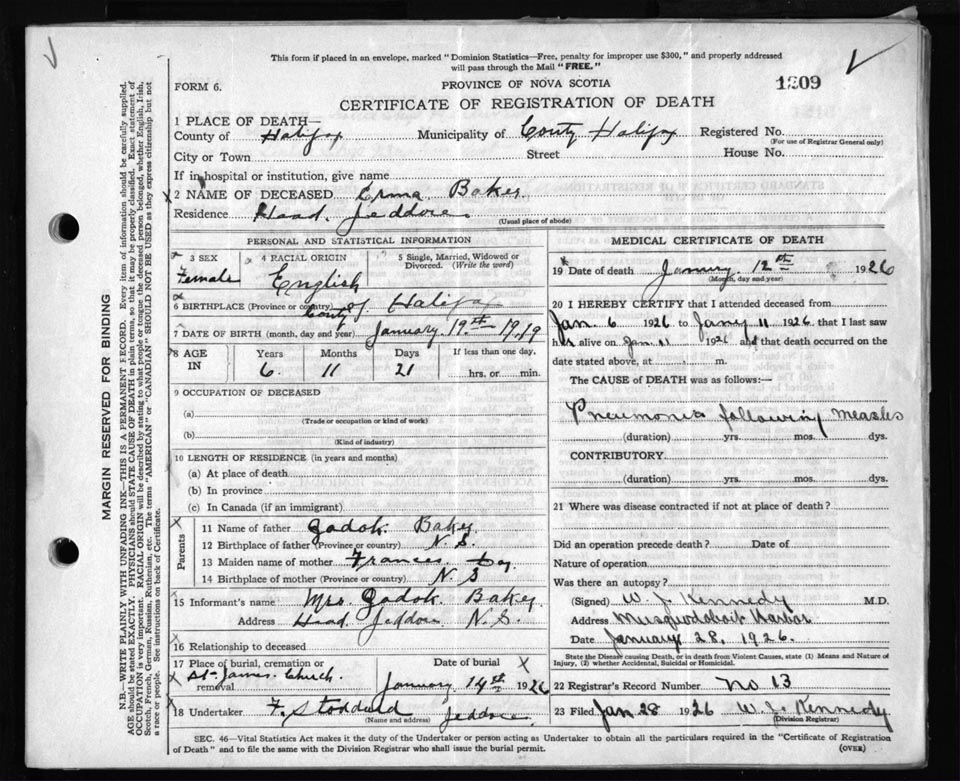 This form if placed in an envelope, marked "Dominion Statistics—Free, penalty for improper use $300," and properly addressed
will pass through the Mail "FREE."
FORM 6.
PROVINCE OF NOVA SCOTIA
1209
CERTIFICATE OF REGISTRATION OF DEATH
1 PLACE OF DEATH—
County of Halifax Municipality of County Halifax Registered No.
(For use of Registrar General only)
City or Town Street House No.
If in hospital or institution, give name
2 NAME OF DECEASED Erma Baker
Residence Head Jeddore
(Usual place of abode)
PERSONAL AND STATISTICAL INFORMATION
3 SEX 4 RACIAL ORIGIN 5 Single, Married, Widowed or
Divorced. (Write the word)
Female English
6 BIRTHPLACE (Province or country) County of Halifax
7 DATE OF BIRTH (month, day and year) January 19th 1919
8 AGE IN Years Months Days If less than one day,
6 11 21 hrs. or min.
9 OCCUPATION OF DECEASED
(a)
(Trade or occupation or kind of work)
(b)
(Kind of industry)
10 LENGTH OF RESIDENCE (in years and months)
(a) At place of death
(b) In province
(c) In Canada (if an immigrant)
Parents
11 Name of father Gadok Baker
12 Birthplace of father (Province or country) N. S.
13 Maiden name of mother Frances Day
14 Birthplace of mother (Province or country) N. S
15 Informant's name Mrs. Gadok Baker
Address Head Jeddore N. S.
16 Relationship to deceased
17 Place of burial, cremation or Date of burial
removal St. James Church January 14th 1926
18 Undertaker F. Stoddard Jeddore
(Name and address)
MEDICAL CERTIFICATE OF DEATH
19 Date of death January 12th 1926
(Month, day and year)
20 I HEREBY CERTIFY that I attended deceased from
Jan. 6 1926 to Jany 11 1926, that I last saw
her alive on Jan. 11 1926 and that death occurred on the
date stated above, at m.
The CAUSE OF DEATH was as follows:—
Pneumonia following measles
(duration) yrs. mos. dys.
CONTRIBUTORY
(duration) yrs. mos. dys.
21 Where was disease contracted if not at place of death?
Did an operation precede death? Date of
Nature of operation
Was there an autopsy?
(Signed) W. J. Kennedy M.D.
Address Musquodoboit Harbor
Date January 28, 1926.
State the Disease causing Death, or in death from Violent Causes, state (1) Means and Nature of
Injury, (2) whether Accidental, Suicidal or Homicidal.
22 Registrar's Record Number No 13
23 Filed Jan 28 1926 W. J. Kennedy
(Division Registrar)
SEC. 46—Vital Statistics Act makes it the duty of the Undertaker or person acting as Undertaker to obtain all the particulars required in the "Certificate of Registration
of Death" and to file the same with the Division Registrar who shall issue the burial permit.
(OVER)
MARGIN RESERVED FOR BINDING
N.B.—WRITE PLAINLY WITH UNFADING INK—THIS IS A PERMANENT RECORD. Every item of information should be carefully supplied.
AGE should be stated EXACTLY. PHYSICIANS should STATE CAUSE OF DEATH in plain terms, so that it may be properly classified. Exact statement of
OCCUPATION is very important. RACIAL ORIGIN will be described by stating to what people or tongue the deceased person belonged, whether English, Irish,
Scotch, French, German, Russian, Ruthenian, etc. The terms "AMERICAN" or "CANADIAN" SHOULD NOT BE USED as they express citizenship but not
a race or people. See instructions on back of Certificate.